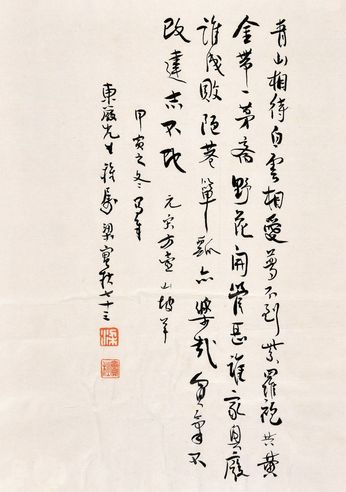 青山相待白雲相愛夢不到紫羅袍共黃
金帶一茅齋野花開管甚誰家興廢
誰成敗陋巷簞瓢亦樂哉貧氣不
改達志不改 元宋方壺山坡羊
甲寅之冬寫奉
東先生雅屬 梁實秋七十三
梁